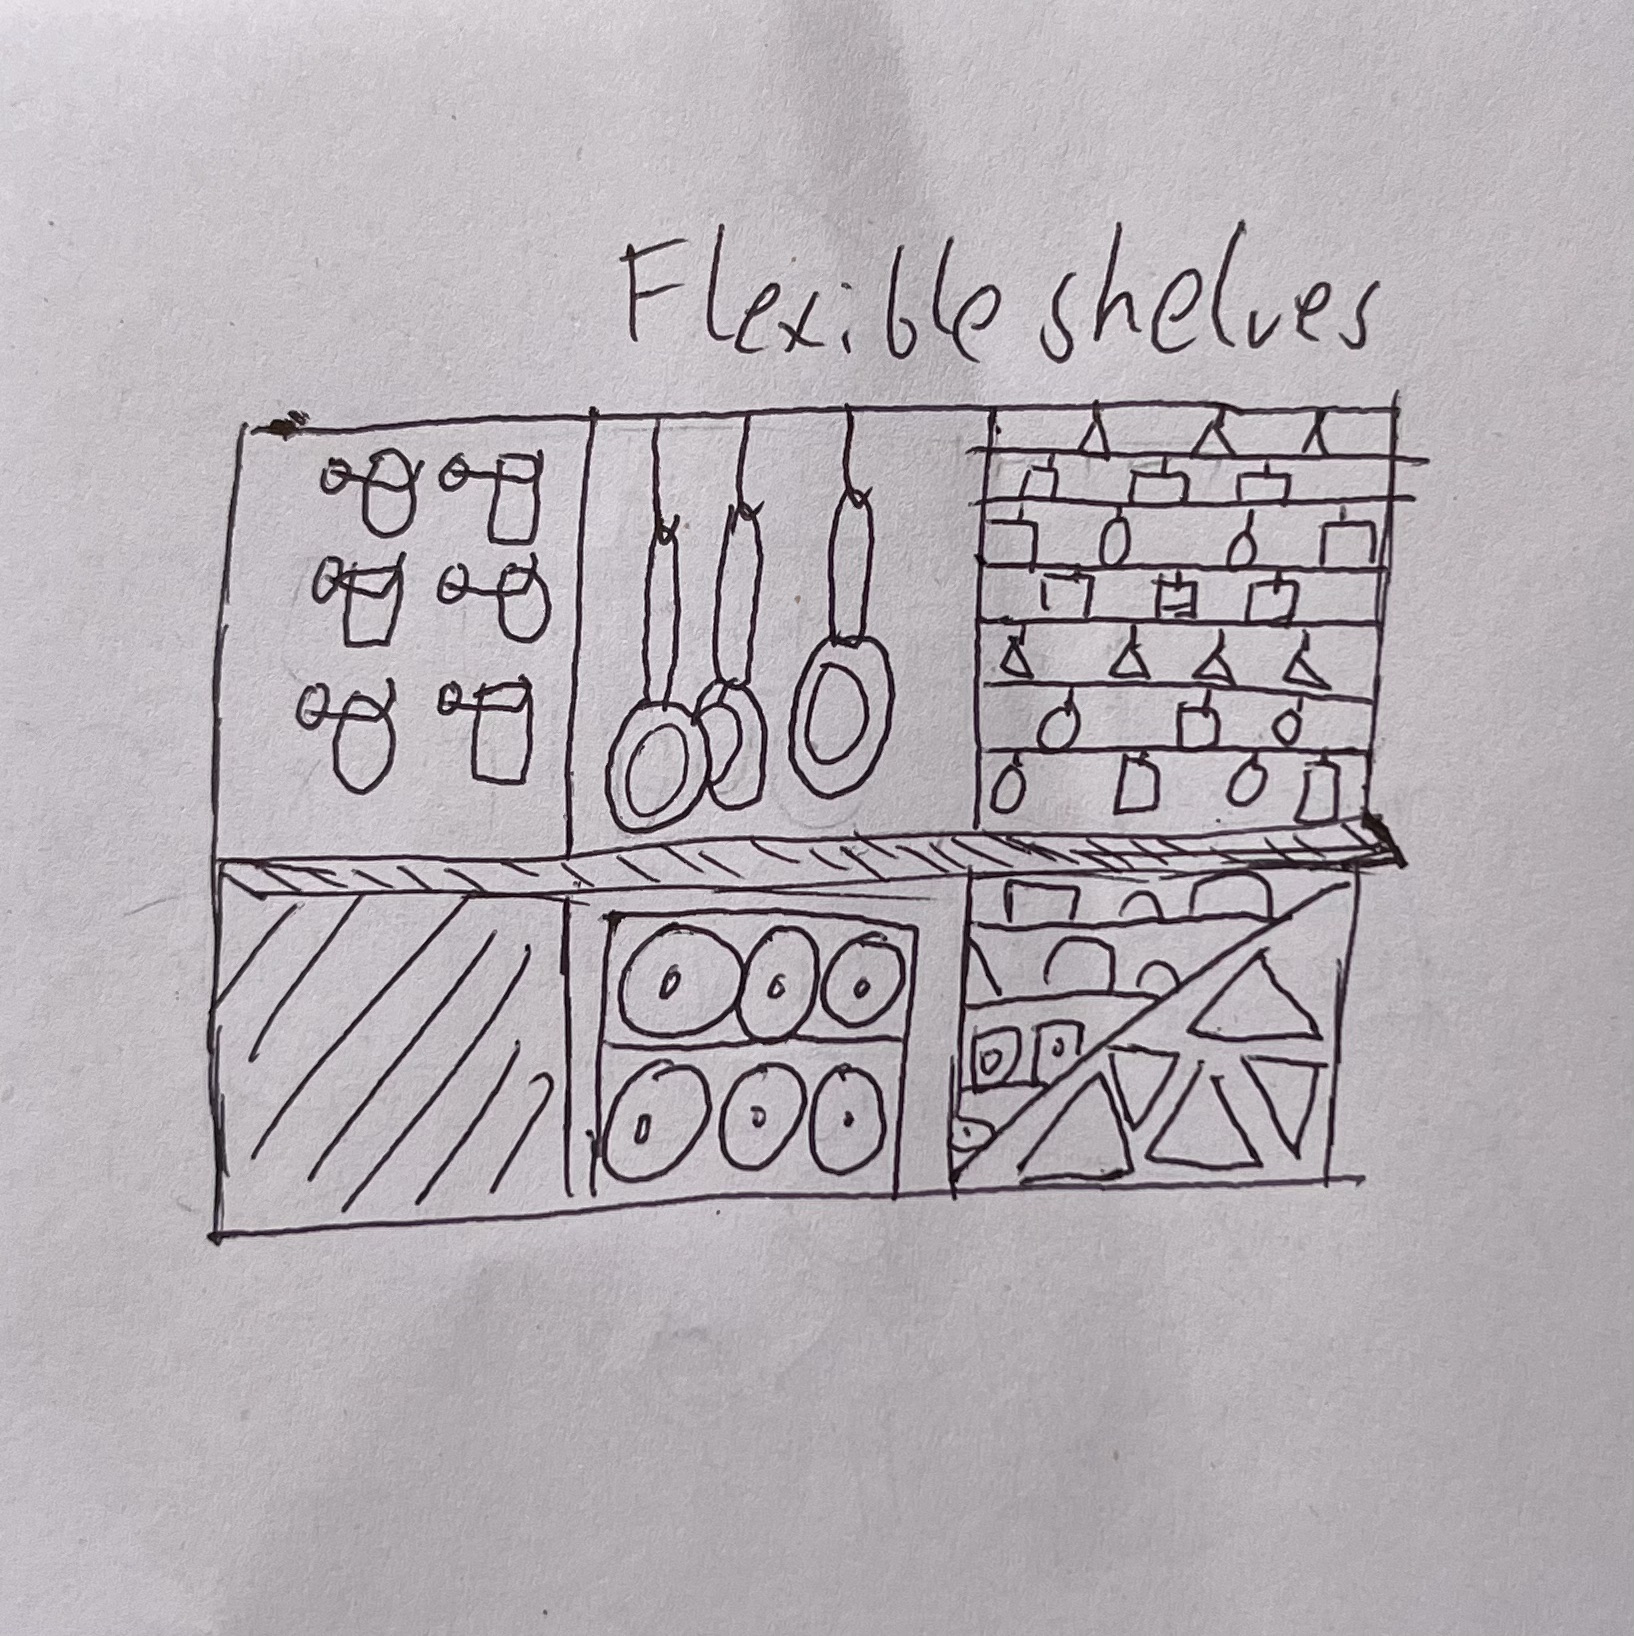 Flexible shelves